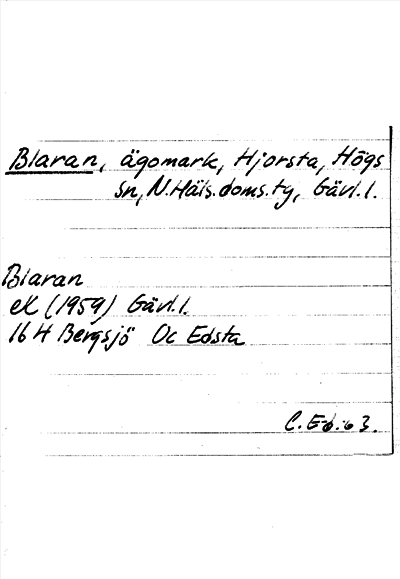 Blaran, ägomark, Hjorsta, Högs
sn, N.Häls.doms.ty, Gävl.l.
Blaran
eK (1959) Gävl.l.
16 H Bergsjö Oc Edsta
C.E-b. 63.